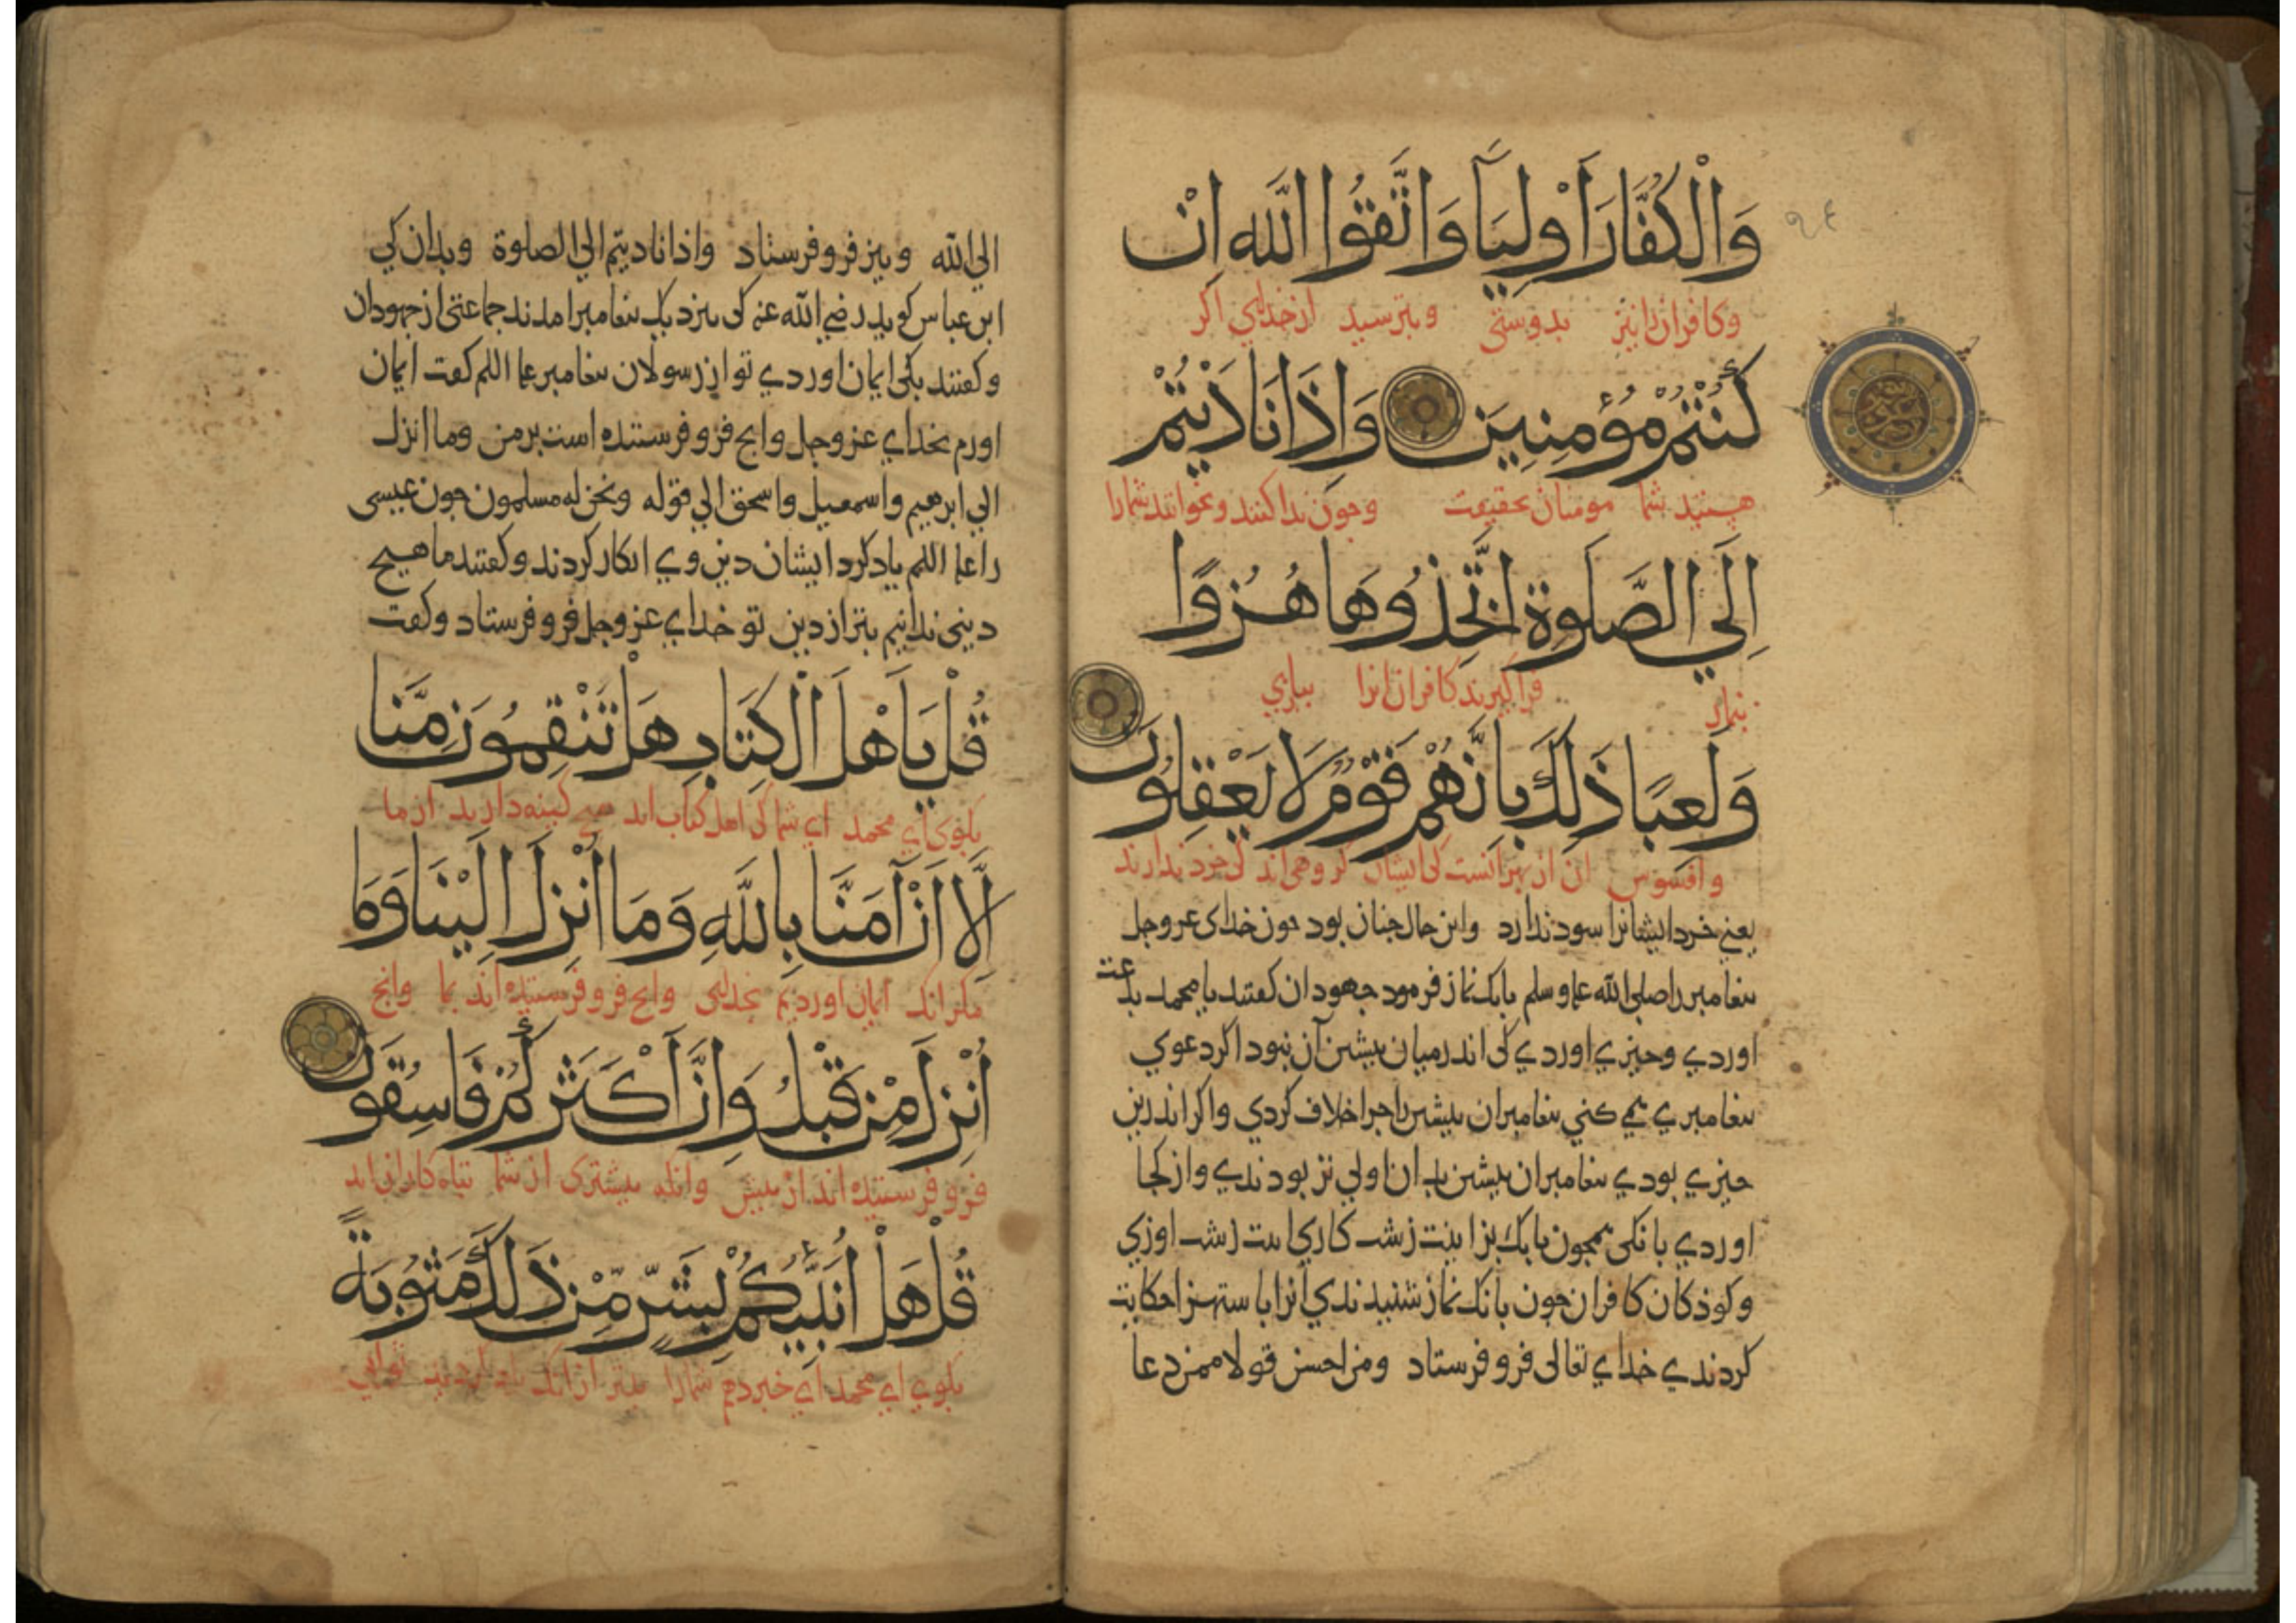 وَالْكُفَّارَ أَوْلِيَآ وَاتَّقُوا اللَّه اِنْ
وكافران را نيز بدوستي وبترسيد از خداي اكر
كُنْتُمْ مُؤْمِنِينَ وَاِذَا نَادَيْتُمْ
هستيد شما مومنان بحقيقت وجون ندا كنند وبخوانند شمارا
اِلَي الصَّلَوة اتَّخَذُوهَا هُزُوًا
بنماز فرا كيرند كافران انرا ببازي
وَلَعِبًا ذَلِكَ بِاَنَّهُمْ قَوْمٌ لَا يَعْقِلُونَ
وافسوس ان از بهر انست كي ايشان كروهي اند كي خرد ندارند
يعني خرد ايشانرا سود ندارد واين حال جنان بود جون خداي عزوجل
بيغامبر را صلى الله علـ وسلم بانك نماز فرمود جهودان كفتند يا محمد بدعت
اوردي وجيزي اوردي كي اندر ميان بيشين آن نبود اكر دعوي
بيغامبري همي كني بيغامبران بيشين را جرا خلاف كردي واكر اندرين
جيزي بودي بيغامبران بيشين بدان اولي تر بودندي واز كجا
اوردي بانكي همجون بانك زشت كاري است زشت اوزي
وكوذكان كافران جون بانك نماز شنيدندي آنرا باستهزا حكايت
كردندي خداي تعالى فرو فرستاد ومن احسن قولا ممن دعا
الي الله ونيز فرو فرستاد واذا ناديتم الي الصلوة وبدان كي
ابن عباس كويد رضي الله عنه كي بنزديك بيغامبر امدند جماعتي از جهودان
وكفتند بكي ايمان اوردي تو از رسولان بيغامبر علـ السلم كفت ايمان
اورم بخداي عزوجل وانج فرو فرستنده است بر من وما انزل
الي ابرهيم واسمعيل واسحق الي قوله ونحن له مسلمون جون عيسى
را علـ السلم ياد كرد ايشان دين وي انكار كردند وكفتند ما هيج
ديني ندانيم بتر از دين تو خداي عزوجل فرو فرستاد وكفت
قُلْ يَاَهْلَ الْكِتَابِ هَلْ تَنْقِمُونَ مِنَّا
بكوي اي محمد اي شما كي اهل كتاب اند كينه داريد از ما
اِلَّا اَنْ آمَنَّا بِاللَّهِ وَمَا اُنْزِلَ اِلَيْنَا وَمَا
مكر انك ايمان اورديم بخداي وانج فرو فرستيده اند بما وانج
اُنْزِلَ مِنْ قَبْلُ وَاِنَّ اَكْثَرَكُمْ فَاسِقُونَ
فرو فرستيده اند از بيش وانكه بيشتري از شما تباه كاران اند
قُلْ هَلْ اُنَبِّئُكُمْ بِشَرٍّ مِنْ ذَلِكَ مَثُوبَةً
بكوي اي محمد اي خبر دهم شمارا بتر از انك